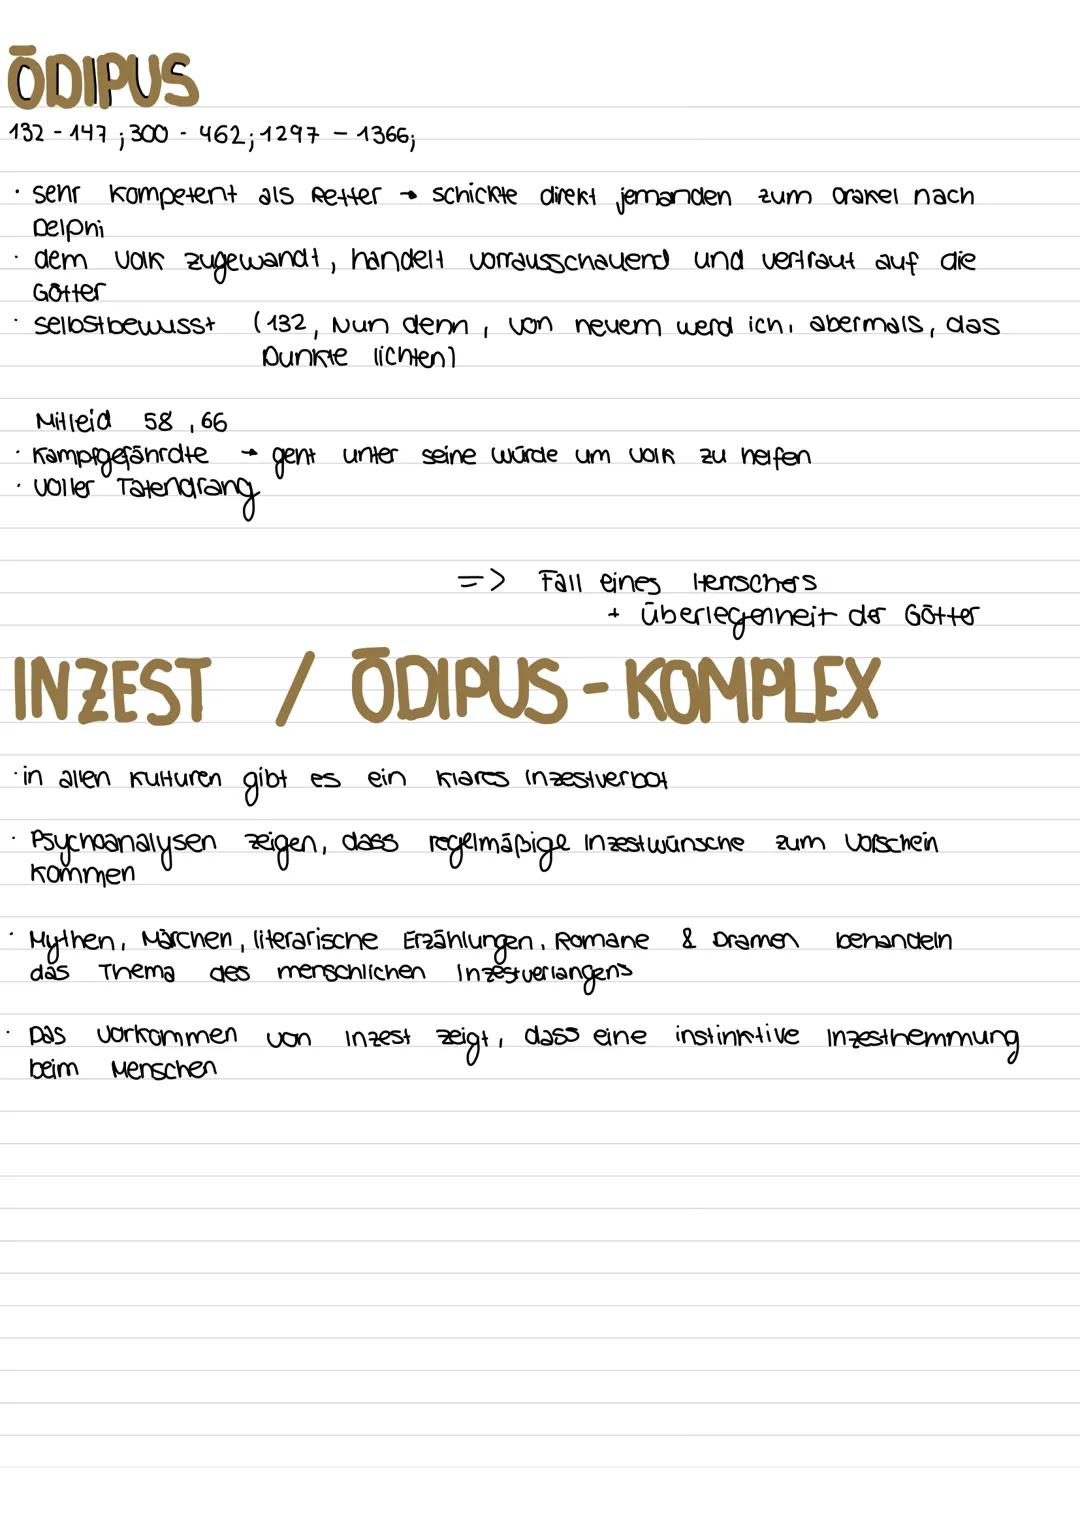 ÖDIPUS
132 - 147 ; 300 - 462; 1297 - 1366;
· sehr kompetent als Retter → schickte direkt jemanden zum Orakel nach
Delphi
· dem Volk zugewandt, handelt vorrausschauend und vertraut auf die
Götter
· selbstbewusst (132, Nun denn, von neuem werd ich, abermals, das
Dunkle lichten)
Mitleid 58, 66
· Kampfgefährdte → geht unter seine würde um Volk zu helfen
· voller Tatendrang
=> Fall eines Herrschers
+ überlegenheit der Götter
INZEST / ÖDIPUS - KOMPLEX
· in allen Kulturen gibt es ein klares Inzestverbot
· Psychoanalysen zeigen, dass regelmäßige Inzestwünsche zum Vorschein
kommen
· Mythen, Märchen, literarische Erzählungen, Romane & Dramen behandeln
das Thema des menschlichen Inzestverlangens
· Das Vorkommen von Inzest zeigt, dass eine instinktive Inzesthemmung
beim Menschen